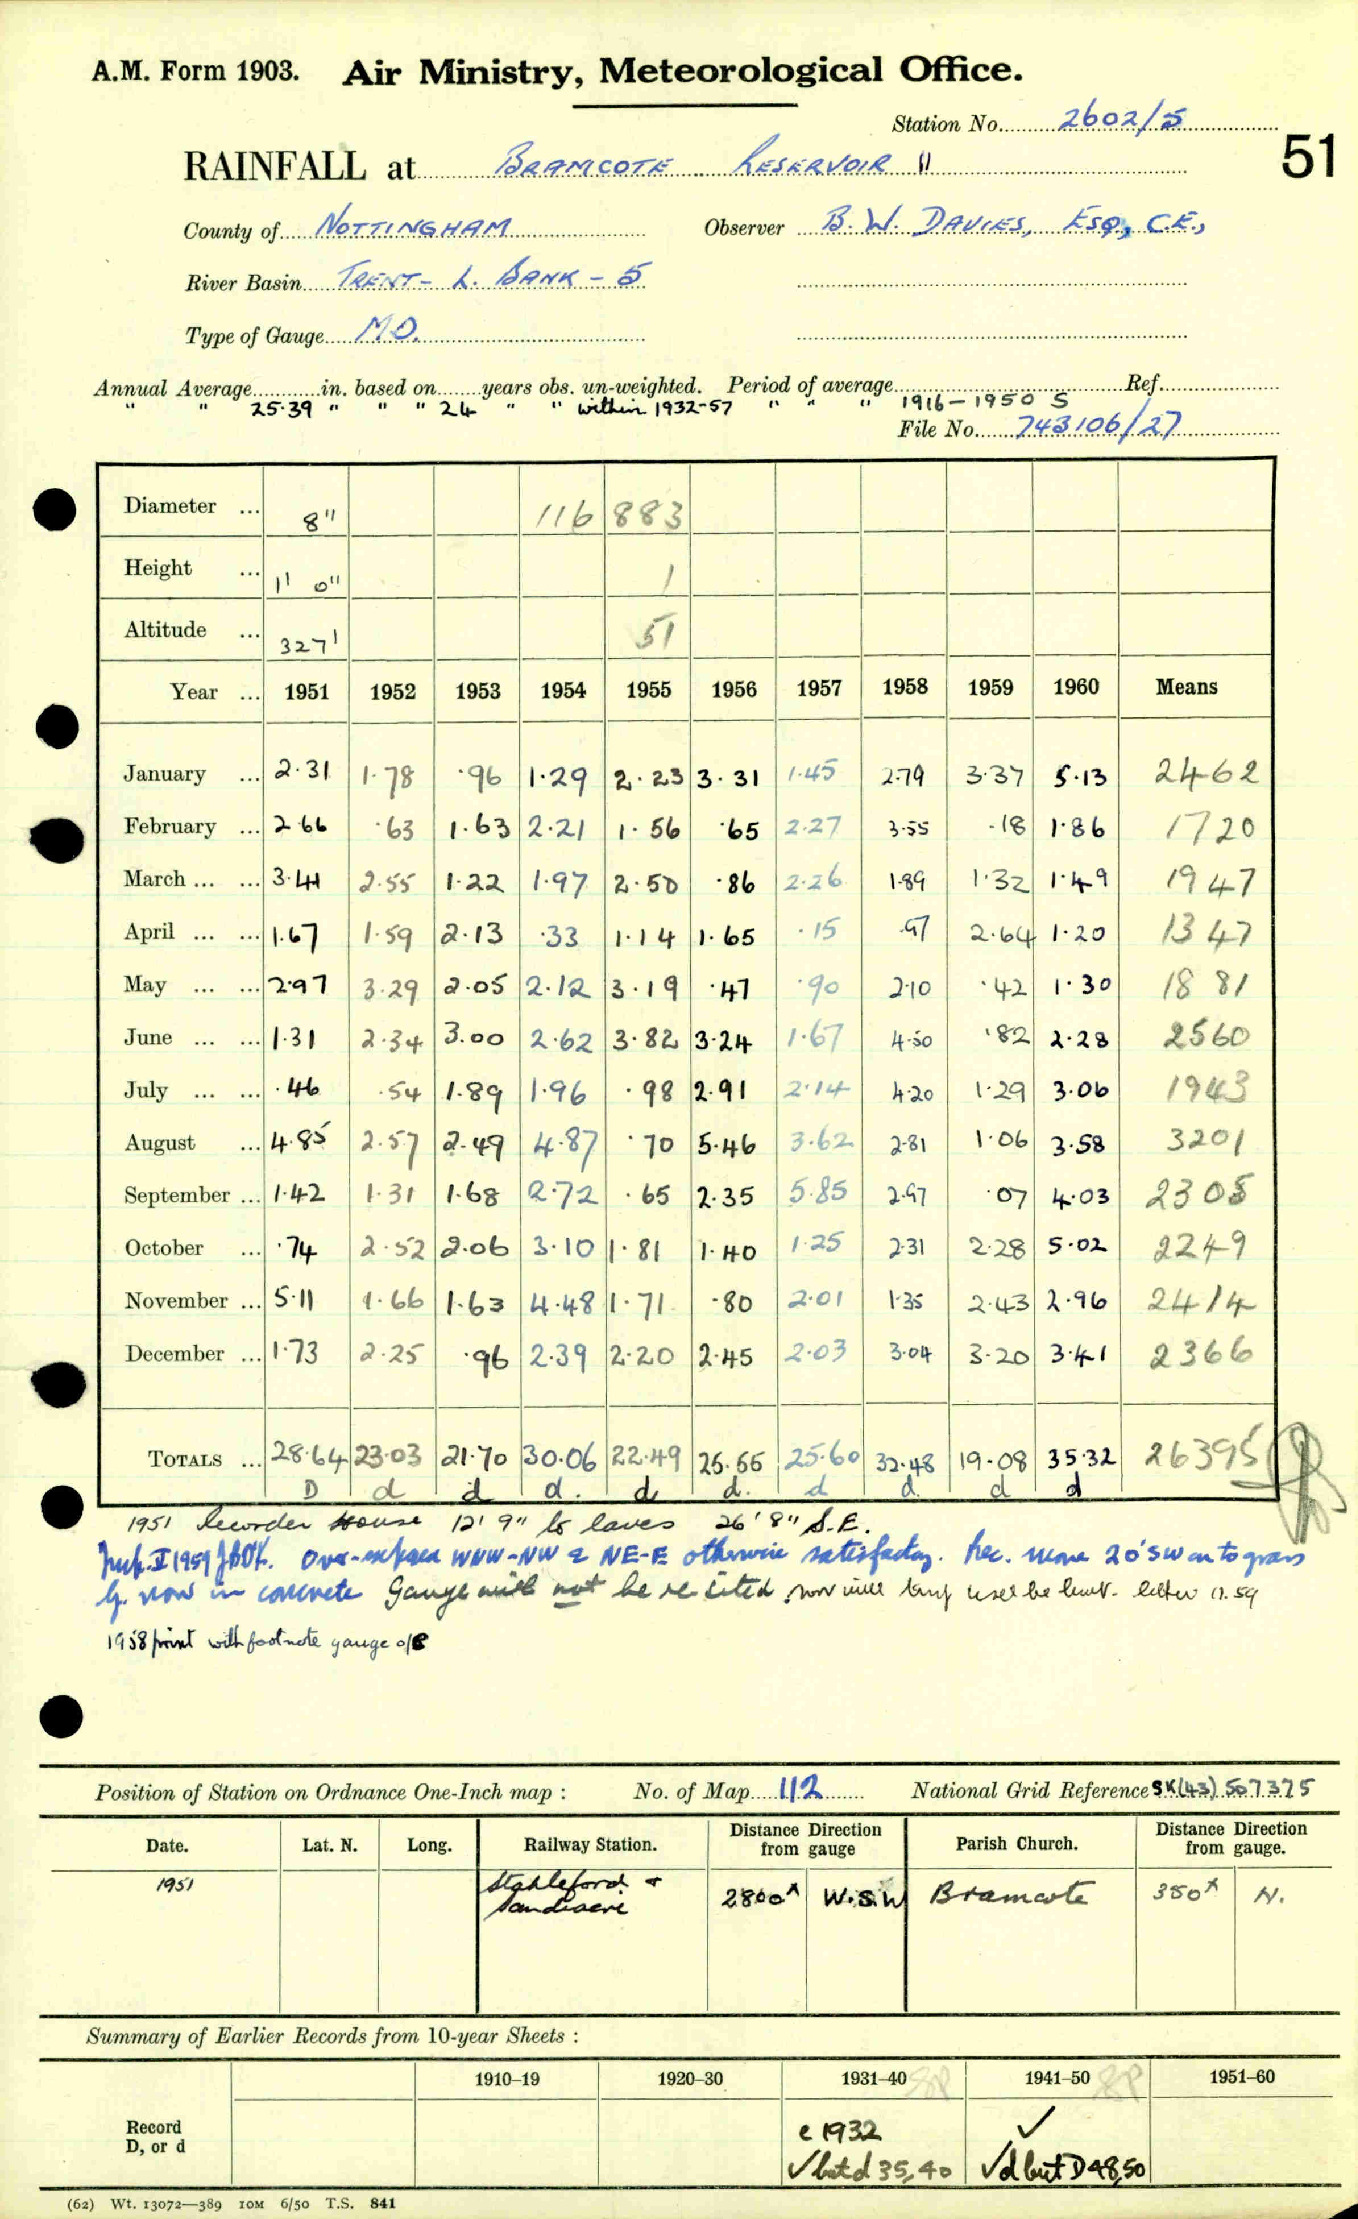 A.M. Form 1903. Air Ministry, Meteorological Office.
Station No. 2602/5
51
RAINFALL at BRAMCOTE RESERVOIR II
County of NOTTINGHAM Observer B. W. DAVIES, ESQ, C.E.,
River Basin TRENT - L. BANK - 5
Type of Gauge M.O.
Annual Average in. based on years obs. un-weighted. Period of average Ref.
" " 25.39 " " " 24 " " within 1932-57 " " " 1916-1950 S
File No. 743106/27
Diameter ... 8" 116 883
Height ... 1' 0" 1
Altitude ... 327' 51
Year ... 1951 1952 1953 1954 1955 1956 1957 1958 1959 1960 Means
January ... 2.31 1.78 .96 1.29 2.23 3.31 1.45 2.79 3.37 5.13 2462
February ... 2.66 .63 1.63 2.21 1.56 .65 2.27 3.55 .18 1.86 1720
March ... ... 3.41 2.55 1.22 1.97 2.50 .86 2.26 1.89 1.32 1.49 1947
April ... ... 1.67 1.59 2.13 .33 1.14 1.65 .15 .97 2.64 1.20 1347
May ... ... 2.97 3.29 2.05 2.12 3.19 .47 .90 2.10 .42 1.30 1881
June ... ... 1.31 2.34 3.00 2.62 3.82 3.24 1.67 4.50 .82 2.28 2560
July ... ... .46 .54 1.89 1.96 .98 2.91 2.14 4.20 1.29 3.06 1943
August ... 4.85 2.57 2.49 4.87 .70 5.46 3.62 2.81 1.06 3.58 3201
September ... 1.42 1.31 1.68 2.72 .65 2.35 5.85 2.97 .07 4.03 2305
October ... .74 2.52 2.06 3.10 1.81 1.40 1.25 2.31 2.28 5.02 2249
November ... 5.11 1.66 1.63 4.48 1.71 .80 2.01 1.35 2.43 2.96 2414
December ... 1.73 2.25 .96 2.39 2.20 2.45 2.03 3.04 3.20 3.41 2366
TOTALS ... 28.64 23.03 21.70 30.06 22.49 25.55 25.60 32.48 19.08 35.32 26395
D d d d. d d. d d. d d
1951 Recorder House 12' 9" to eaves 26' 8" S.E.
Over-exposed WNW-NW & NE-E otherwise satisfactory. Rec. move 20' SW on to grass
G. now in concrete Gauge will not be re-sited, nor will turf be letter 11.59
1958 print with footnote gauge o/e
Position of Station on Ordnance One-Inch map : No. of Map 112 National Grid Reference SK(43) 507375
Date. Lat. N. Long. Railway Station. Distance Direction from gauge Parish Church. Distance Direction from gauge.
1951 Stapleford & Sandiacre 2800x W.S.W Bramcote 350x N.
Summary of Earlier Records from 10-year Sheets :
1910–19 1920–30 1931–40 1941–50 1951–60
Record D, or d
c 1932 ✓
✓ but d 35, 40 ✓d but D 48, 50
(62) Wt. 13072—389 10M 6/50 T.S. 841